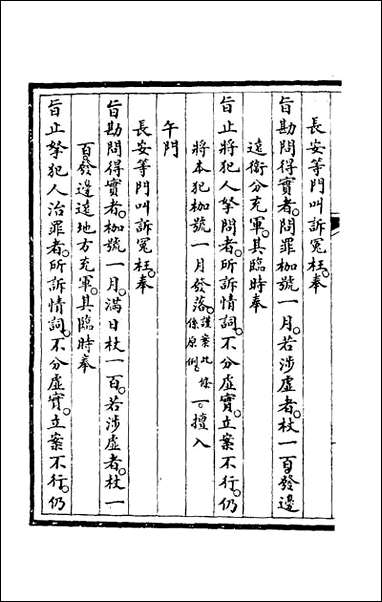 長安等門叫訴冤枉。奉
旨勘問得實者。問罪枷號一月。若涉虛者。杖一百發邊
遠衛分充軍。其臨時奉
旨止將犯人拏問者。所訴情詞。不分虛實。立案不行。仍
將本犯枷號一月發落。謹案此條係原例。一。擅入
午門
長安等門叫訴冤枉。奉
旨勘問得實者。枷號一月。滿日杖一百。若涉虛者。杖一
百發邊遠地方充軍。其臨時奉
旨止拏犯人治罪者。所訴情詞。不分虛實。立案不行。仍